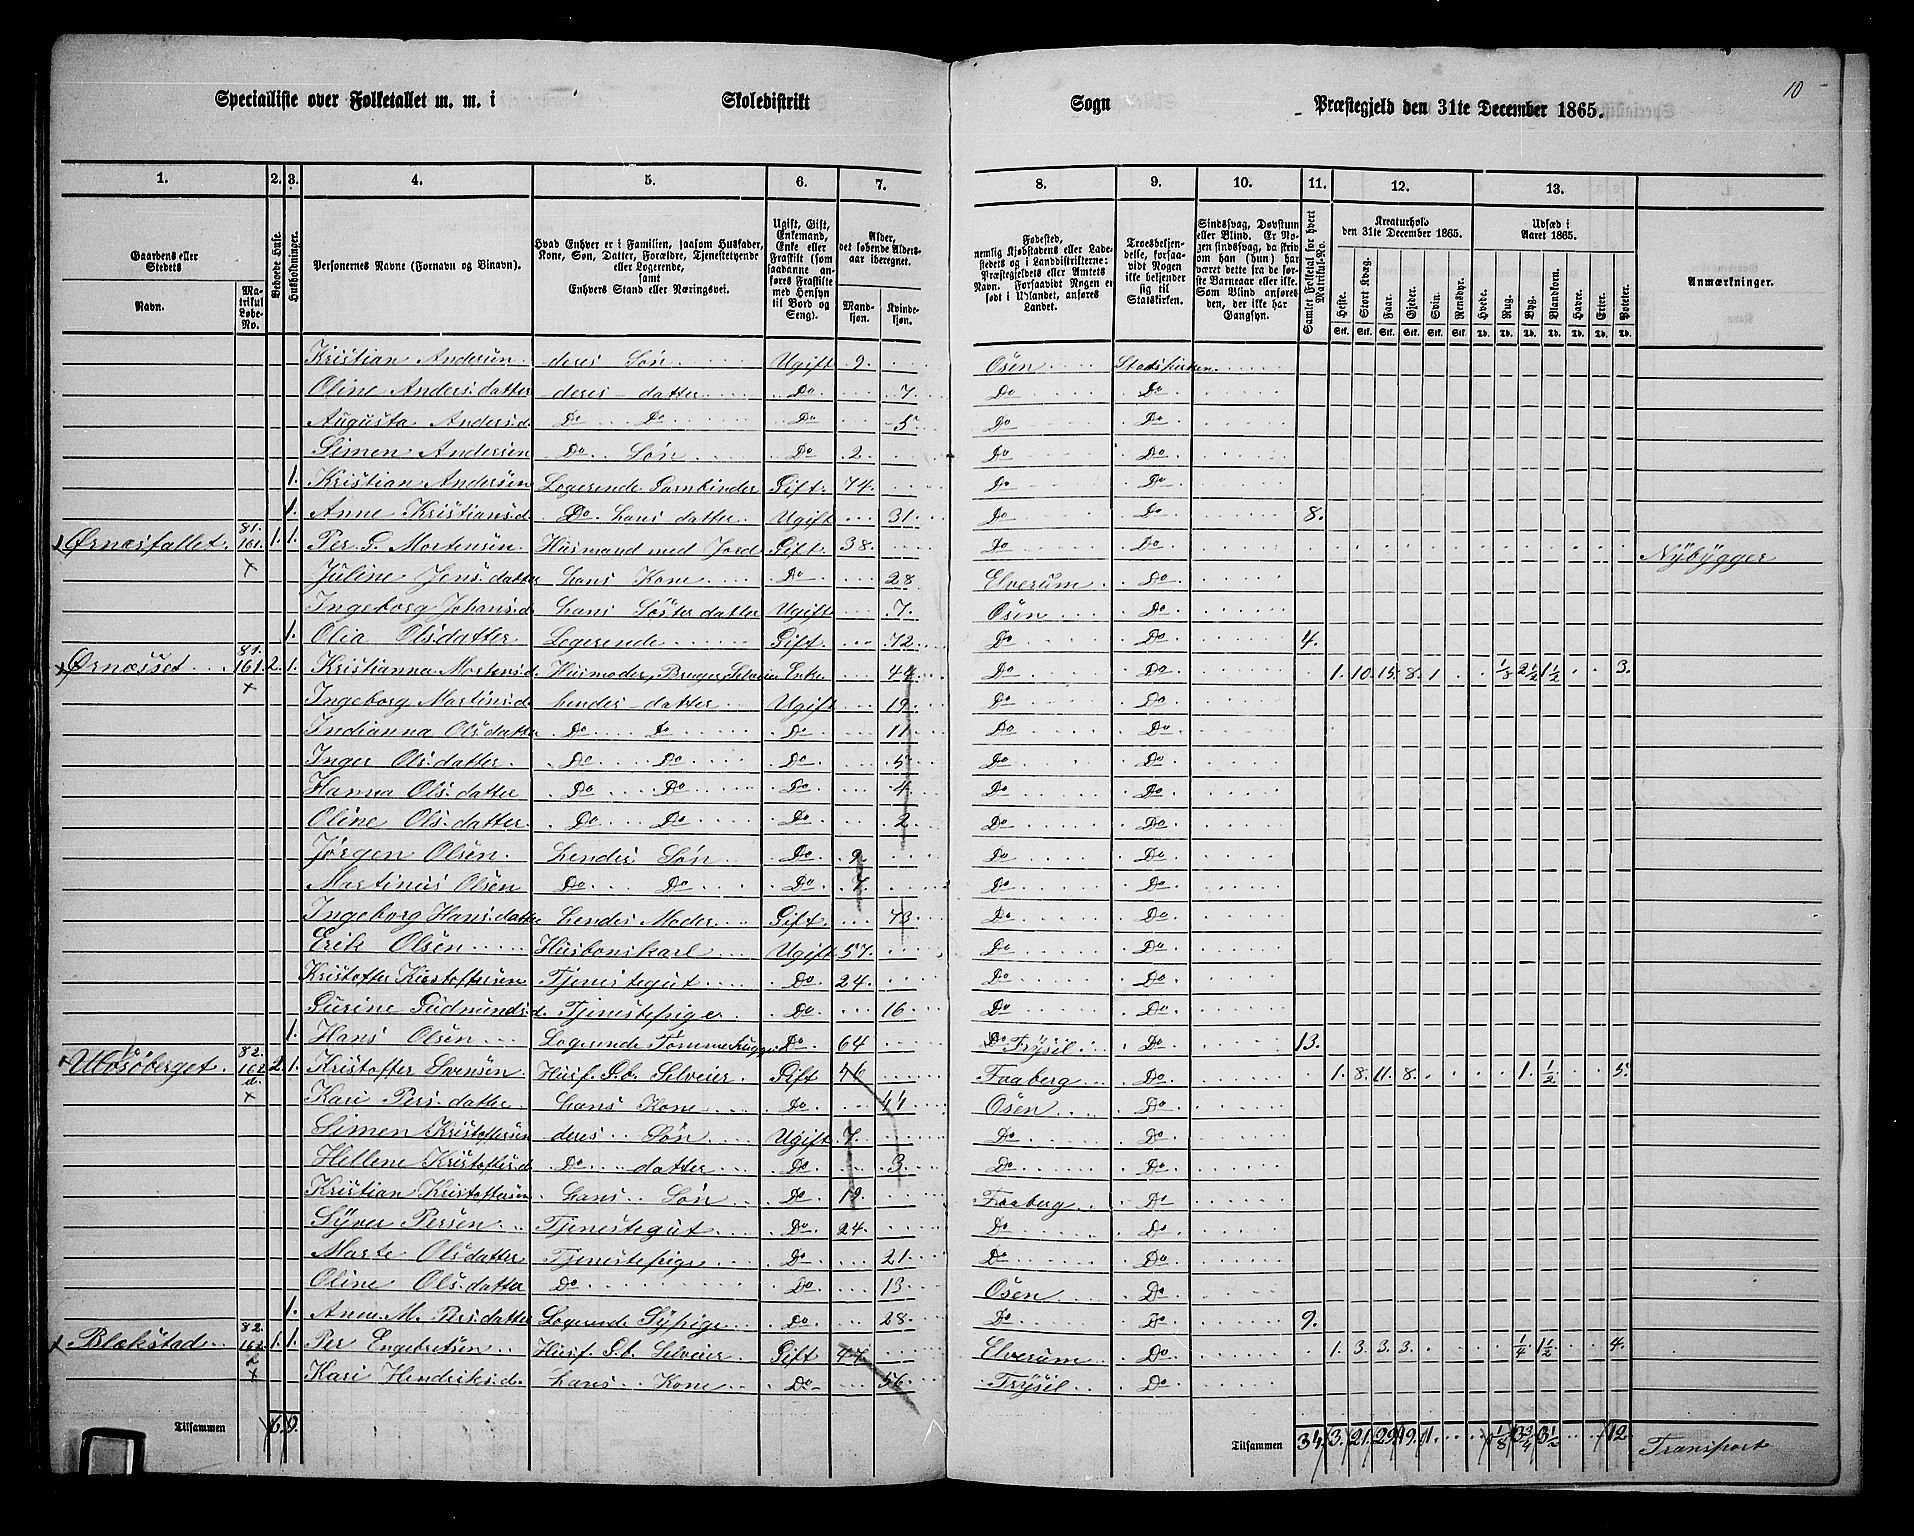 10
Specialliste over Folketallet m. m. i Skoledistrikt Sogn Præstegjeld den 31te December 1865.
1. 2. 3. 4. 5. 6. 7. 8. 9. 10. 11. 12. 13.
Gaardens eller Stedets
Navn.
Matrikul Løbe-No.
Beboede Huse.
Husholdninger.
Personernes Navne (Fornavn og Binavn).
Hvad Enhver er i Familien, saasom Husfader, Kone, Søn, Datter, Forældre, Tjenestetyende eller Logerende,
samt
Enhvers Stand eller Næringsvei.
Ugift, Gift, Enkemand, Enke eller Fraskilt (som saadanne anføres Fraskilte med Hensyn til Bord og Seng).
Alder, det løbende Aldersaar iberegnet.
Mandkjøn.
Kvindekjøn.
Fødested,
nemlig Kjøbstadens eller Ladestedets og i Landdistrikterne: Præstegjeldets eller Amtets Navn. Forsaavidt Nogen er født i Udlandet, anføres Landet.
Troesbekjendelse, forsaavidt Nogen ikke bekjender sig til Statskirken.
Sindssvag, Døvstum eller Blind. Er Nogen sindssvag, da skrives om han (hun) har været dette fra de første Barneaar eller ikke. Som Blind anføres den, der ikke har Gangsyn.
Samlet Folketal for hvert Matrikul-No.
Kreaturhold
den 31te December 1865.
Heste. Stort Kvæg. Faar. Gjeder. Svin. Rensdyr.
Stk. Stk. Stk. Stk. Stk. Stk.
Udsæd i
Aaret 1865.
Hvede. Rug. Byg. Blandkorn. Havre. Erter. Poteter.
Td. Td. Td. Td. Td. Td. Td.
Anmærkninger.
Kristian Andersen deres Søn Ugift 9. Osen Statskirken
Oline Andersdatter deres datter Do 7 Do Do
Augusta Anders.d. Do Do Do 5 Do Do
Simen Andersen Do Søn Do 2 Do Do
1. Kristian Andersen Logerende Garnbinder Gift 74. Do Do
1. Anne Kristians.d. Do hans datter Ugift 31. Do Do 8.
Ørnæsfallet 81. 161. 1. 1. Per G. Mortensen Husmand med Jord Gift 38. Do Do Nybygger
Juline Jensdatter hans Kone Do 28 Elverum Do
Ingeborg Johans.d. hans Søsterdatter Ugift 7. Osen Do
1. Olia Olsdatter Logerende Gift 72. Do Do 4.
Ørnæsset 81. 161. 2. 1. Kristianna Mortens.d. Husmoder, Bruger, Selveier Enke 44 Do Do 1. 10. 15. 8. 1 1/8 2 1/2 1 1/2 3.
Ingeborg Martins.d. hendes datter Ugift 19. Do Do
Indianna Olsdatter Do Do Do 11 Do Do
Inger Olsdatter Do Do Do 5 Do Do
Hanna Olsdatter Do Do Do 4 Do Do
Oline Olsdatter Do Do Do 2 Do Do
Jørgen Olsen hendes Søn Do 9 Do Do
Martinus Olsen Do Do Do 7. Do Do
Ingeborg Hansdatter hendes Moder Gift 73 Do Do
Erik Olsen Husbonskarl Ugift 57. Do Do
Kristoffer Kristoffersen Tjenestegut Do 24. Do Do
Gurine Gudmunds.d. Tjenestepige Do 16 Do Do
1. Hans Olsen Logerende Tømmerhugger Do 64 Trysil Do 13.
82. 162. d. 2. 1. Kristoffer Svensen Husf. G.b. Selveier Gift 46 Faaberg Do 1. 8. 11. 8. 1. 1/2 5.
Kari Persdatter hans Kone Do 44 Osen Do
Simen Kristoffersen deres Søn Ugift 7. Do Do
Hellene Kristoffers.d Do datter Do 3. Do Do
Kristian Kristoffersen hans Søn Do 19 Faaberg Do
Syver Persen Tjenestegut Do 24. Do Do
Marte Olsdatter Tjenestepige Do 21 Do Do
Oline Olsdatter Do Do 13. Osen Do
1. Anne M. Persdatter Logerende Sypige Do 28. Do Do 9.
Blekstad 82. 162. 1. 1. Per Engebretsen Husf. G.b. Selveier Gift 47. Elverum Do 1. 3. 3. 3. 1/4 1 1/2 4.
Kari Hendriks.d. hans Kone Do 56 Trysil Do
Tilsammen 6. 9. Tilsammen 34. 3. 21. 29. 19. 1. 1/8 3 3/4 3 1/2 12. Transport